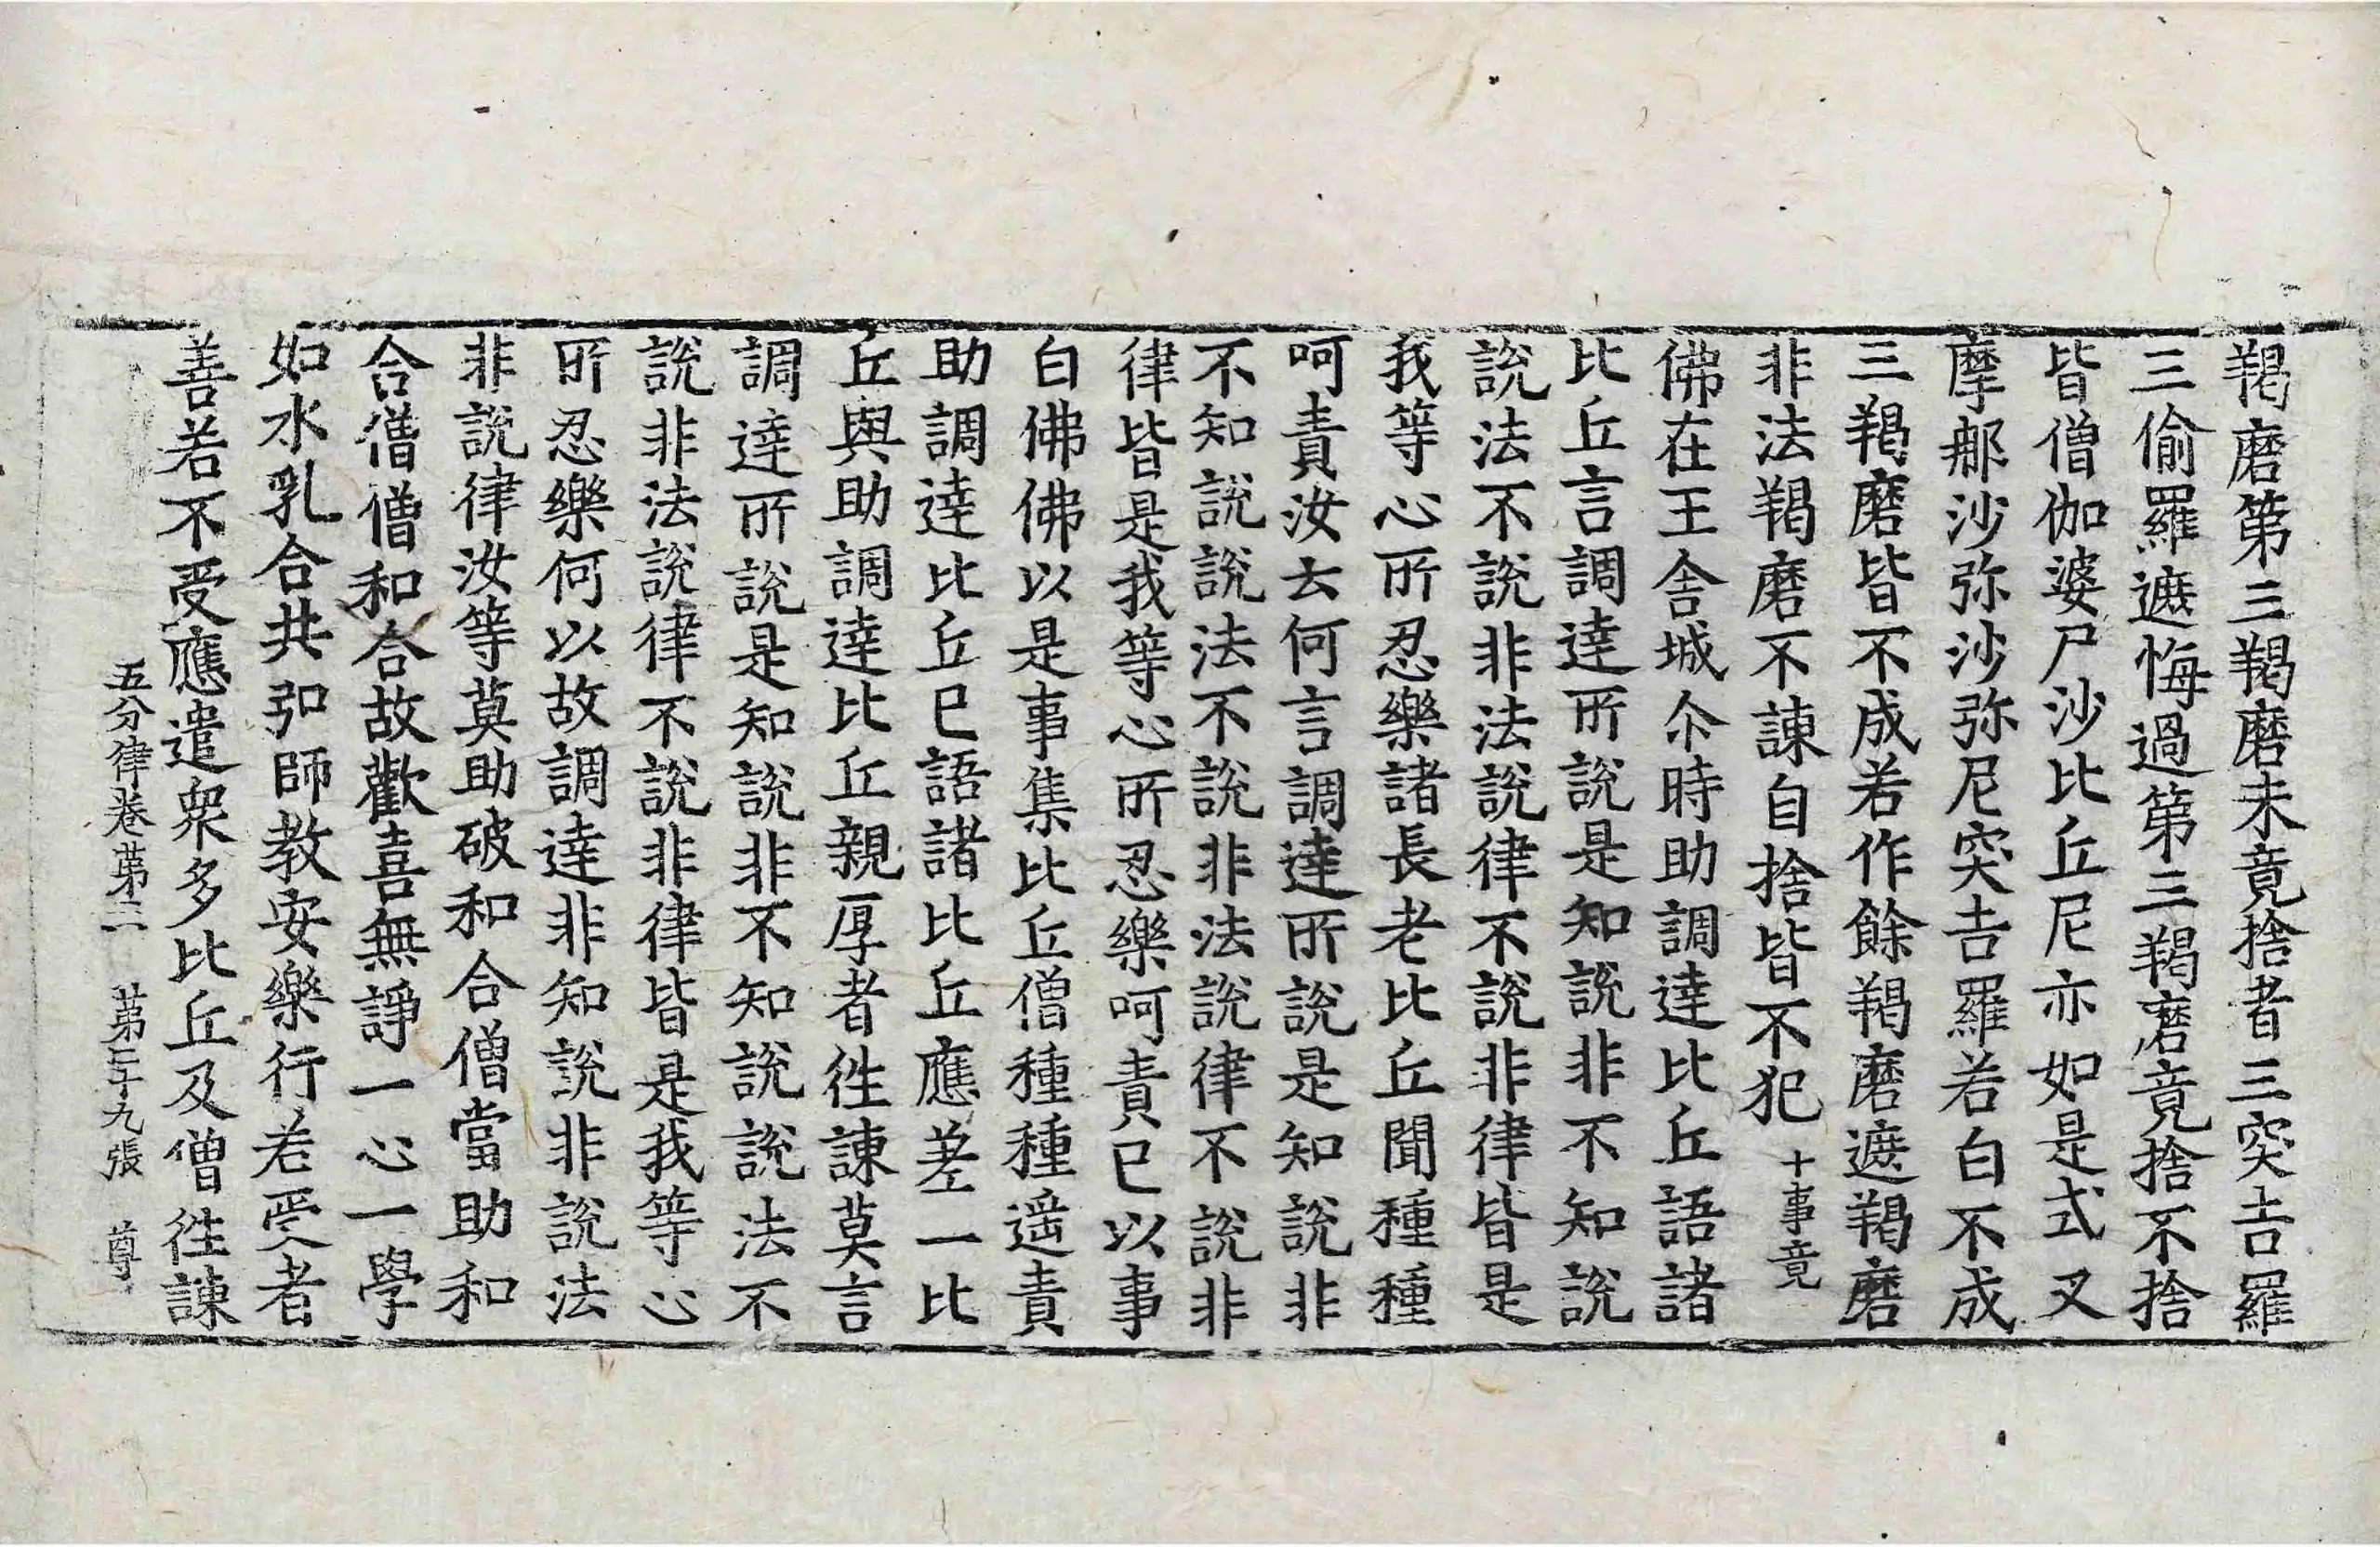 羯磨第三羯磨未竟捨者三突吉羅
三偷羅遮悔過第三羯磨竟捨不捨
皆僧伽婆尸沙比丘尼亦如是式叉
摩那沙弥沙弥尼突吉羅若白不成
三羯磨皆不成若作餘羯磨遮羯磨
非法羯磨不諫自捨皆不犯十事竟
佛在王舍城尒時助調達比丘語諸
比丘言調達所說是知說非不知說
說法不說非法說律不說非律皆是
我等心所忍樂諸長老比丘聞種種
呵責汝云何言調達所說是知說非
不知說說法不說非法說律不說非
律皆是我等心所忍樂呵責已以事
白佛佛以是事集比丘僧種種遥責
助調達比丘已語諸比丘應差一比
丘與助調達比丘親厚者往諫莫言
調達所說是知說非不知說說法不
說非法說律不說非律皆是我等心
所忍樂何以故調達非知說非說法
非說律汝等莫助破和合僧當助和
合僧僧和合故歡喜無諍一心一學
如水乳合共弘師教安樂行若受者
善若不受應遣衆多比丘及僧往諫
五分律卷第三 第三十九張 尊